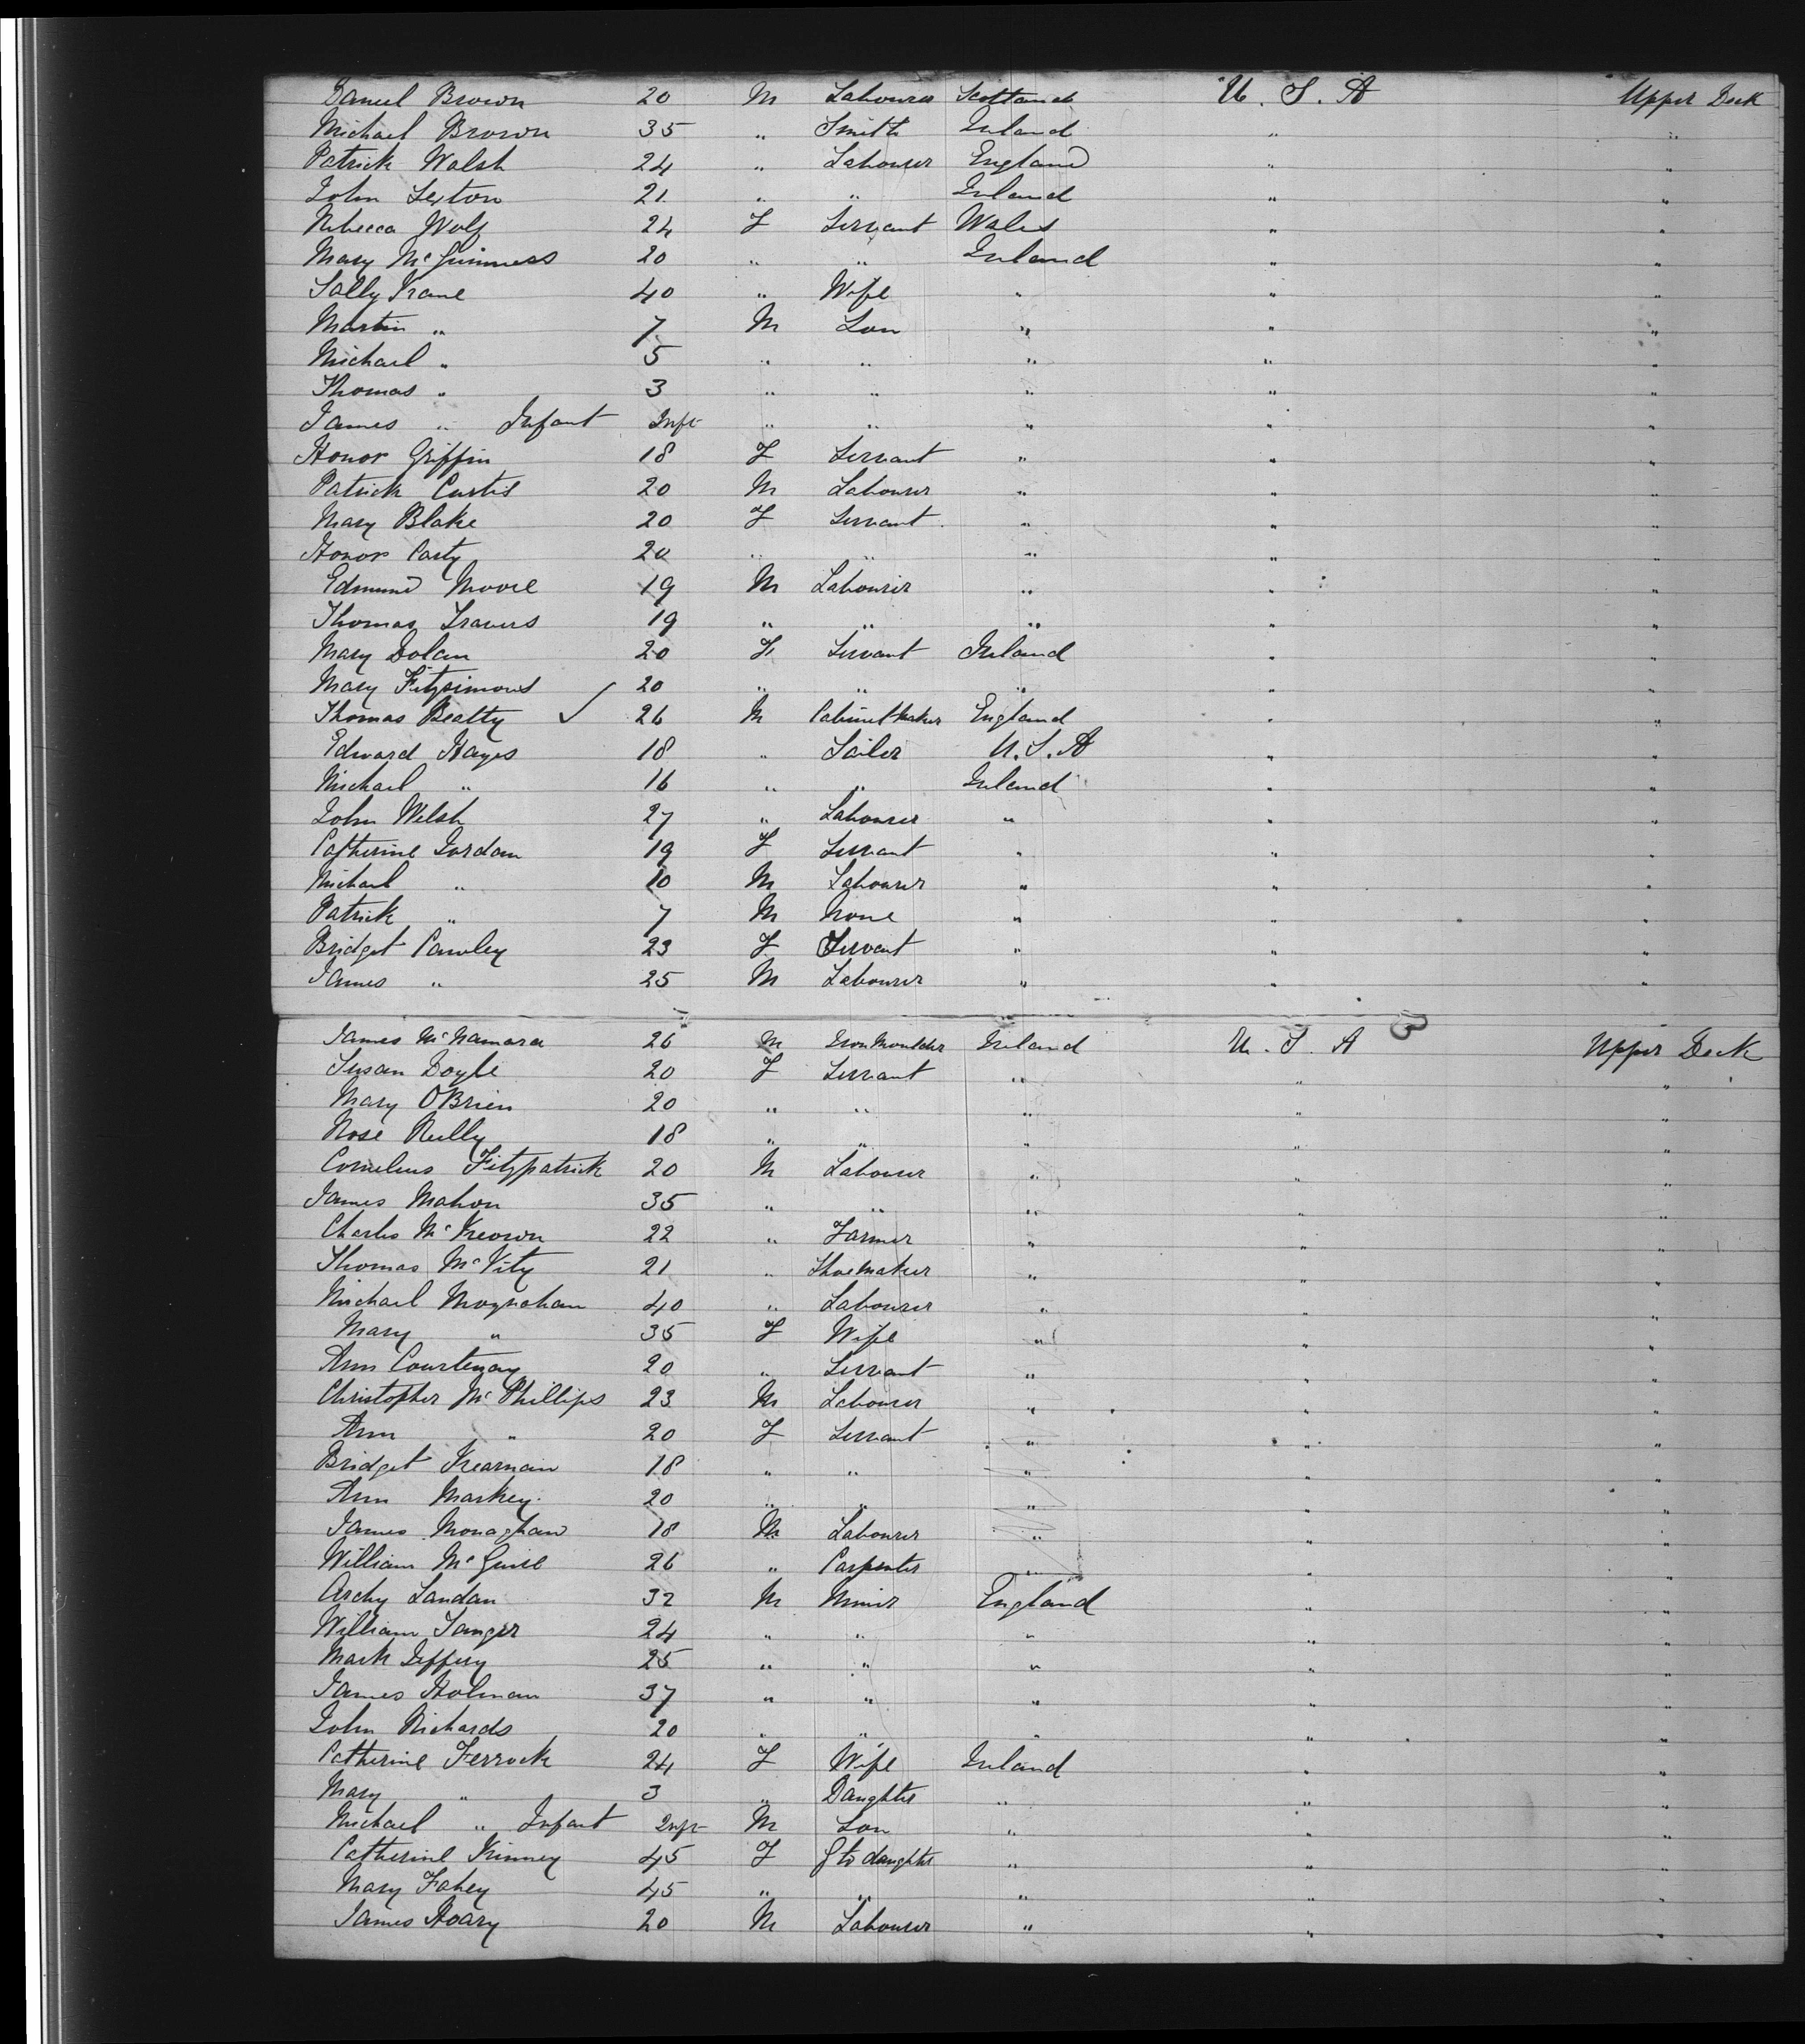 Daniel Brown 20 M Labourer Scotland U. S. A Upper Deck
Michael Brown 35 " Smith Ireland " "
Patrick Walsh 24 " Labourer England " "
John Sexton 21 " " Ireland " "
Rebecca Wolf 24 F Servant Wales " "
Mary McGuinness 20 " " Ireland " "
Sally Krane 40 " Wife " " "
Martin " 7 M Son " " "
Michael " 5 " " " " "
Thomas " 3 " " " " "
James " Infant Inft " " " " "
Honor Griffin 18 F Servant " " "
Patrick Curtis 20 M Labourer " " "
Mary Blake 20 F Servant " " "
Honor Carty 20 " " " " "
Edmund Moore 19 M Labourer " " "
Thomas Travers 19 " " " " "
Mary Dolan 20 F Servant Ireland " "
Mary Fitzsimons 20 " " " " "
Thomas Beatty ✓ 26 M Cabinet Maker England " "
Edward Hayes 18 " Sailer U.S.A " "
Michael " 16 " " Ireland " "
John Welsh 27 " Labourer " " "
Catherine Jordan 19 F Servant " " "
Michael " 10 M Labourer " " "
Patrick " 7 M None " " "
Bridget Cawley 23 F Servant " " "
James " 25 M Labourer " " "
James McNamara 26 M Iron Moulder Ireland U. S. A Upper Deck
Susan Doyle 20 F Servant " " "
Mary OBrien 20 " " " " "
Rose Reilly 18 " " " " "
Cornelius Fitzpatrick 20 M Labourer " " "
James Mahon 35 " " " " "
Charles McKeown 22 " Farmer " " "
Thomas McVity 21 " Shoemaker " " "
Michael Moynahan 40 " Labourer " " "
Mary " 35 F Wife " " "
Ann Courtenay 20 " Servant " " "
Christopher McPhillips 23 M Labourer " " "
Ann " 20 F Servant " " "
Bridget Kearnain 18 " " " " "
Ann Markey 20 " " " " "
James Monaghan 18 M Labourer " " "
William McGuire 26 " Carpenter " " "
Archy Landan 32 M Miner England " "
William Sanger 24 " " " " "
Mark Jeffery 25 " " " " "
James Holman 37 " " " " "
John Richards 20 " " " " "
Catherine Ferrock 24 F Wife Ireland " "
Mary " 3 " Daughter " " "
Michael " Infant Inft M Son " " "
Catherine Kinney 45 F G to daughter " " "
Mary Fahey 45 " " " " "
James Hoary 20 M Labourer " " "